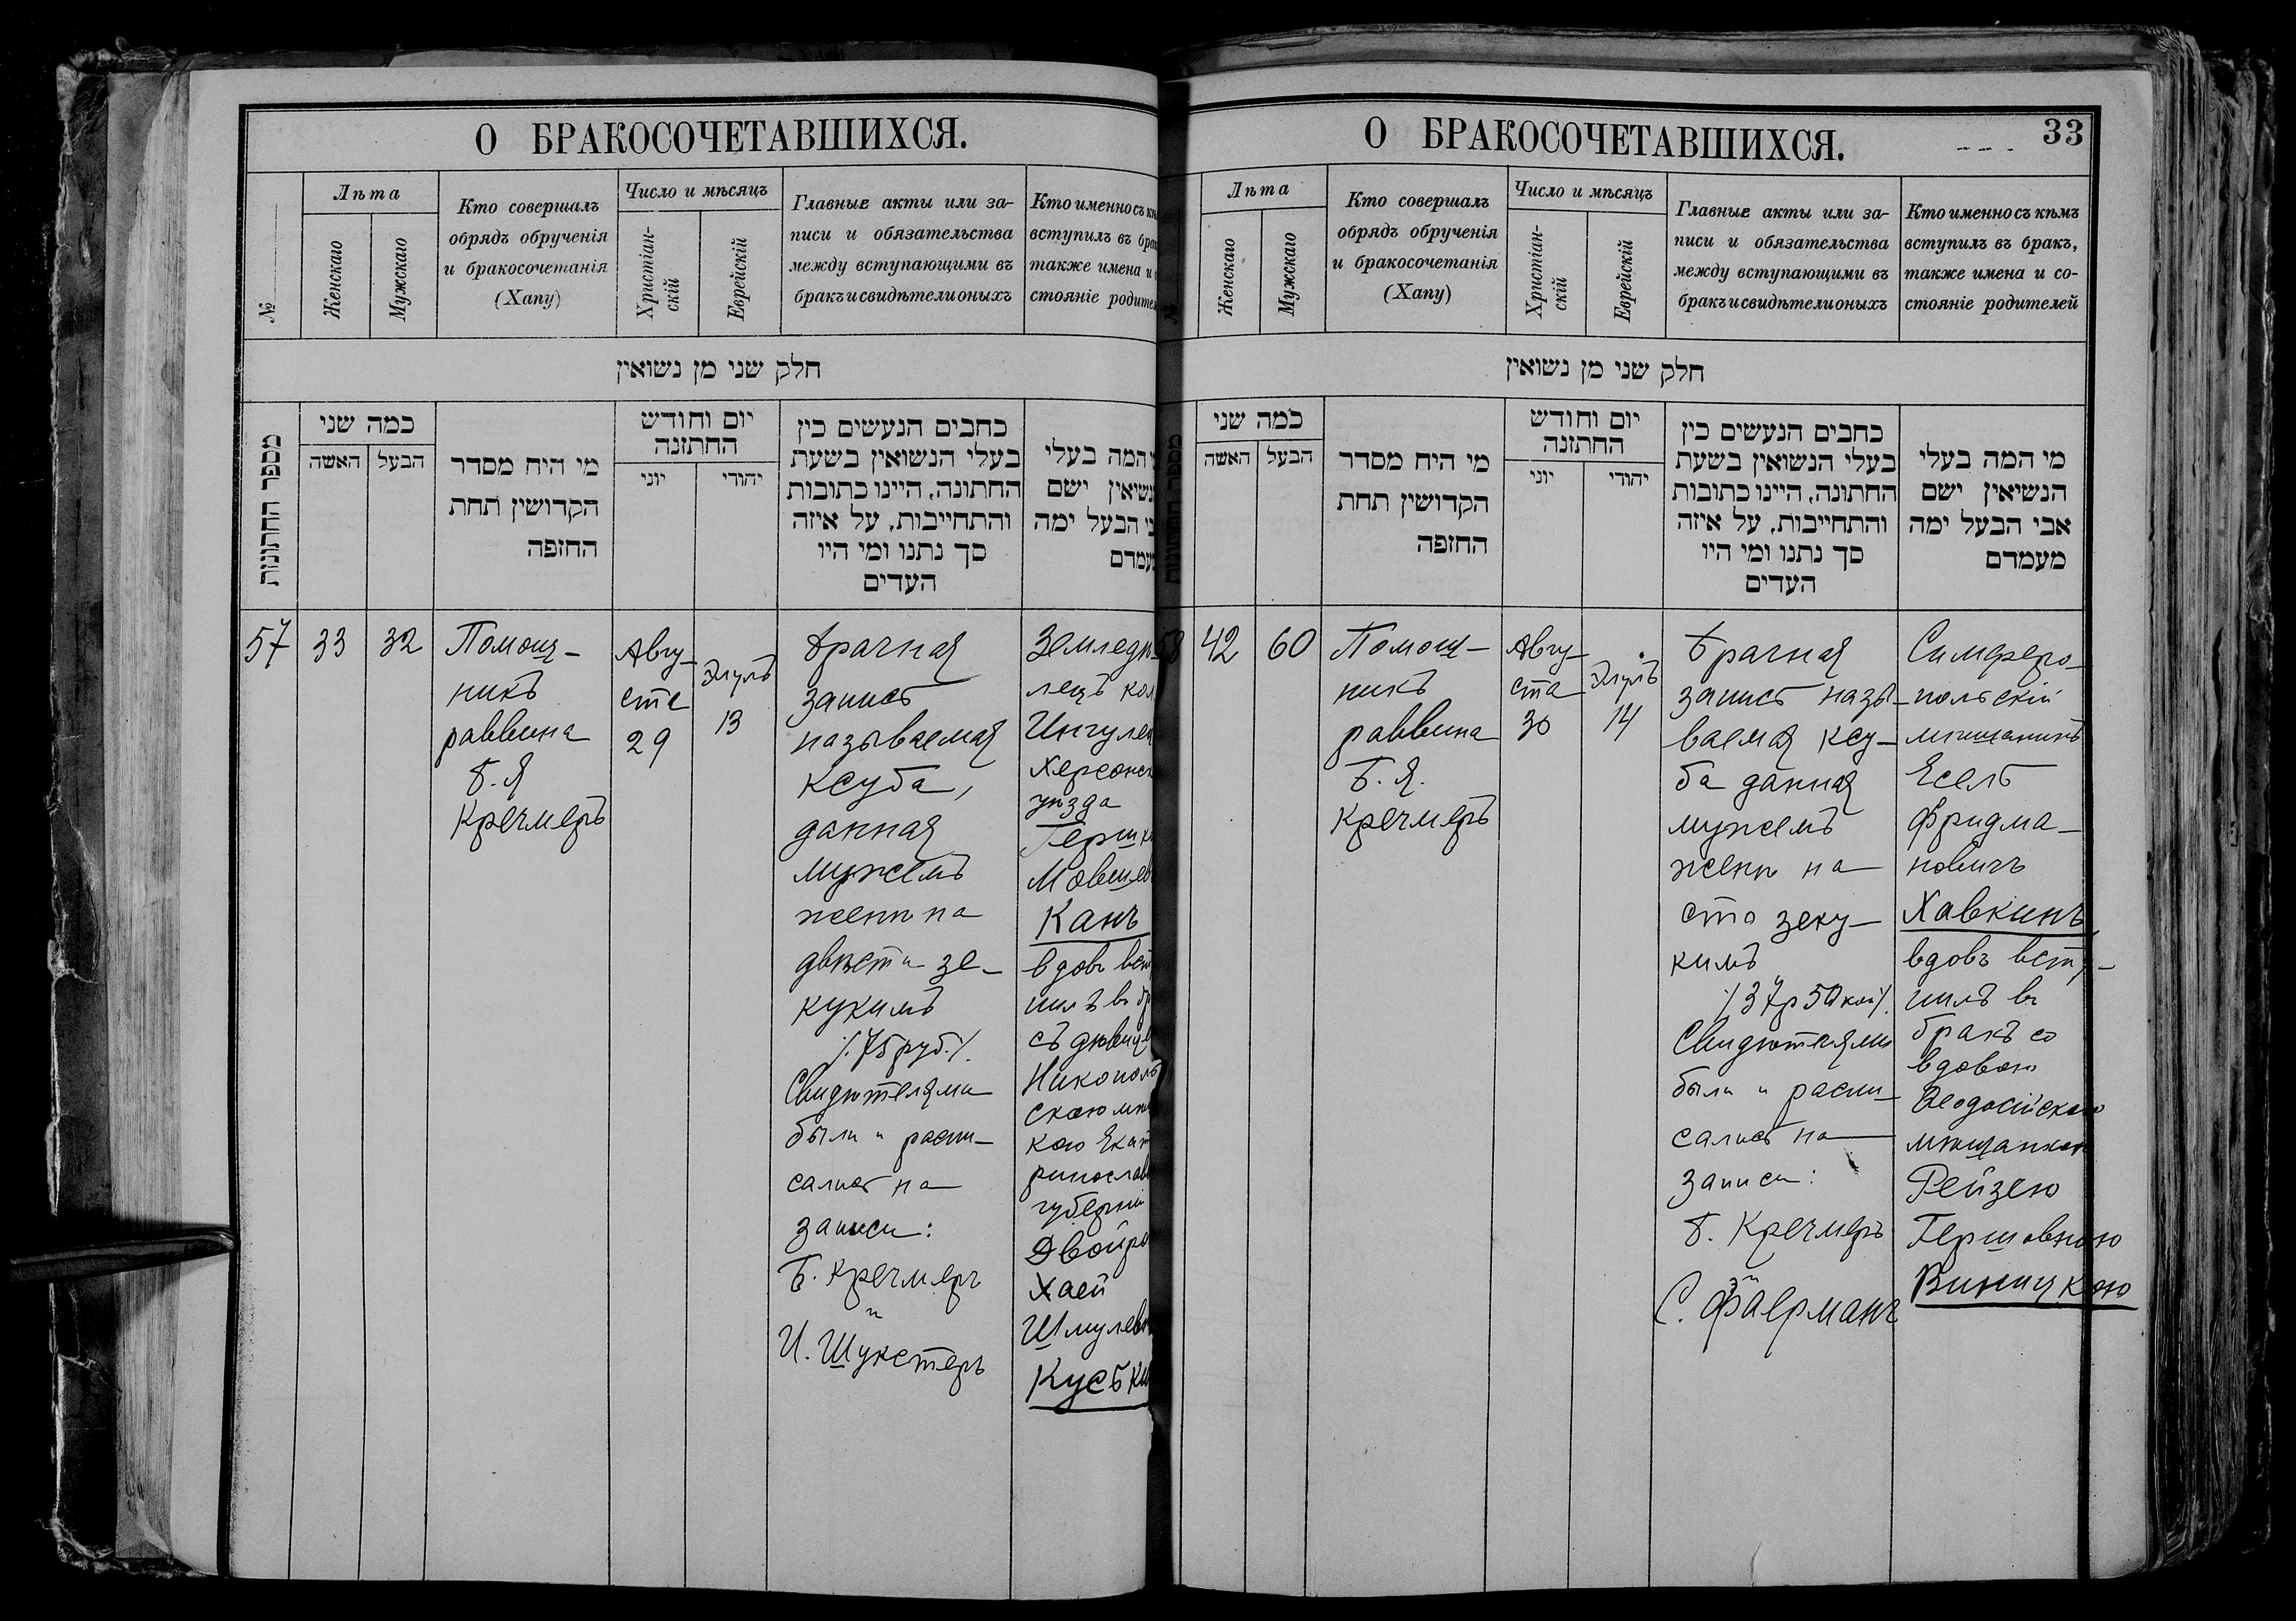 О БРАКОСОЧЕТАВШИХСЯ.
№
Лѣта
Женскаго
Мужскаго
Кто совершалъ
обрядъ обрученія
и бракосочетанія
(Хапу)
Число и мѣсяцъ
Христіан-
скій
Еврейскій
Главные акты или за-
писи и обязательства
между вступающими въ
бракъ и свидѣтели оныхъ
Кто именно съ
вступилъ въ
также имена и
стояніе
חלק שני מן נשואין
מספר החתונות
כמה שני
האשה
הבעל
מי היח מסדר
הקדושין תחת
החזפה
יום וחודש
החתונה
יוני
יהודי
כחבים הנעשים בין
בעלי הנשואין בשעת
החתונה, היינו כתובות
והתחייבות, על איזה
סך נתנו ומי היו
העדים
המה בעלי
ישם
הבעל ימה
57
33
32
Помощ-
никъ
раввина
Б. Я
Кречмеръ
Авгу-
ста
29
Элулъ
13
Брачная
запись
называемая
ксуба,
данная
мужемъ
женѣ на
двѣсти зе-
кукимъ
/.75 руб./.
Свидѣтелями
были и распи-
сались на
записи:
Б. Кречмеръ
и
И. Шукстеръ
Земледѣ-
лецъ

уѣзда

Канъ
вдовъ
въ
съ

скою
кою

губерніи

Хаей

О БРАКОСОЧЕТАВШИХСЯ.
33
Лѣта
Женскаго
Мужскаго
Кто совершалъ
обрядъ обрученія
и бракосочетанія
(Хапу)
Число и мѣсяцъ
Христіан-
скій
Еврейскій
Главные акты или за-
писи и обязательства
между вступающими въ
бракъ и свидѣтели оныхъ
Кто именно съ кѣмъ
вступилъ въ бракъ,
также имена и со-
стояніе родителей
חלק שני מן נשואין
כמה שני
האשה
הבעל
מי היח מסדר
הקדושין תחת
החזפה
יום וחודש
החתונה
יוני
יהודי
כחבים הנעשים בין
בעלי הנשואין בשעת
החתונה, היינו כתובות
והתחייבות, על איזה
סך נתנו ומי היו
העדים
מי המה בעלי
הנשיאין ישם
אבי הבעל ימה
מעמדם
58
42
60
Помощ-
никъ
раввина
Б. Я.
Кречмеръ
Авгу-
ста
30
Элулъ
14
Брачная
запись назы-
ваемая ксу-
ба данная
мужемъ
женѣ на
сто зеку-
кимъ
/37р 50 коп/.
Свидѣтелями
были и распи-
сались на
записи:
Б. Кречмеръ
и
С. Фаерманъ
Симферо-
польскій
мѣщанинъ
Есель
Фридма-
новичъ
Хавкинъ
вдовъ всту-
пилъ въ
бракъ со
вдовою
Ѳеодосійскою
мѣщанкою
Рейзею
Гершовною
Виницкою